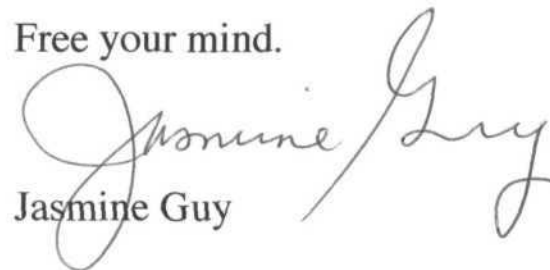 Free your mind.
Jasmine Guy
Jasmine Guy